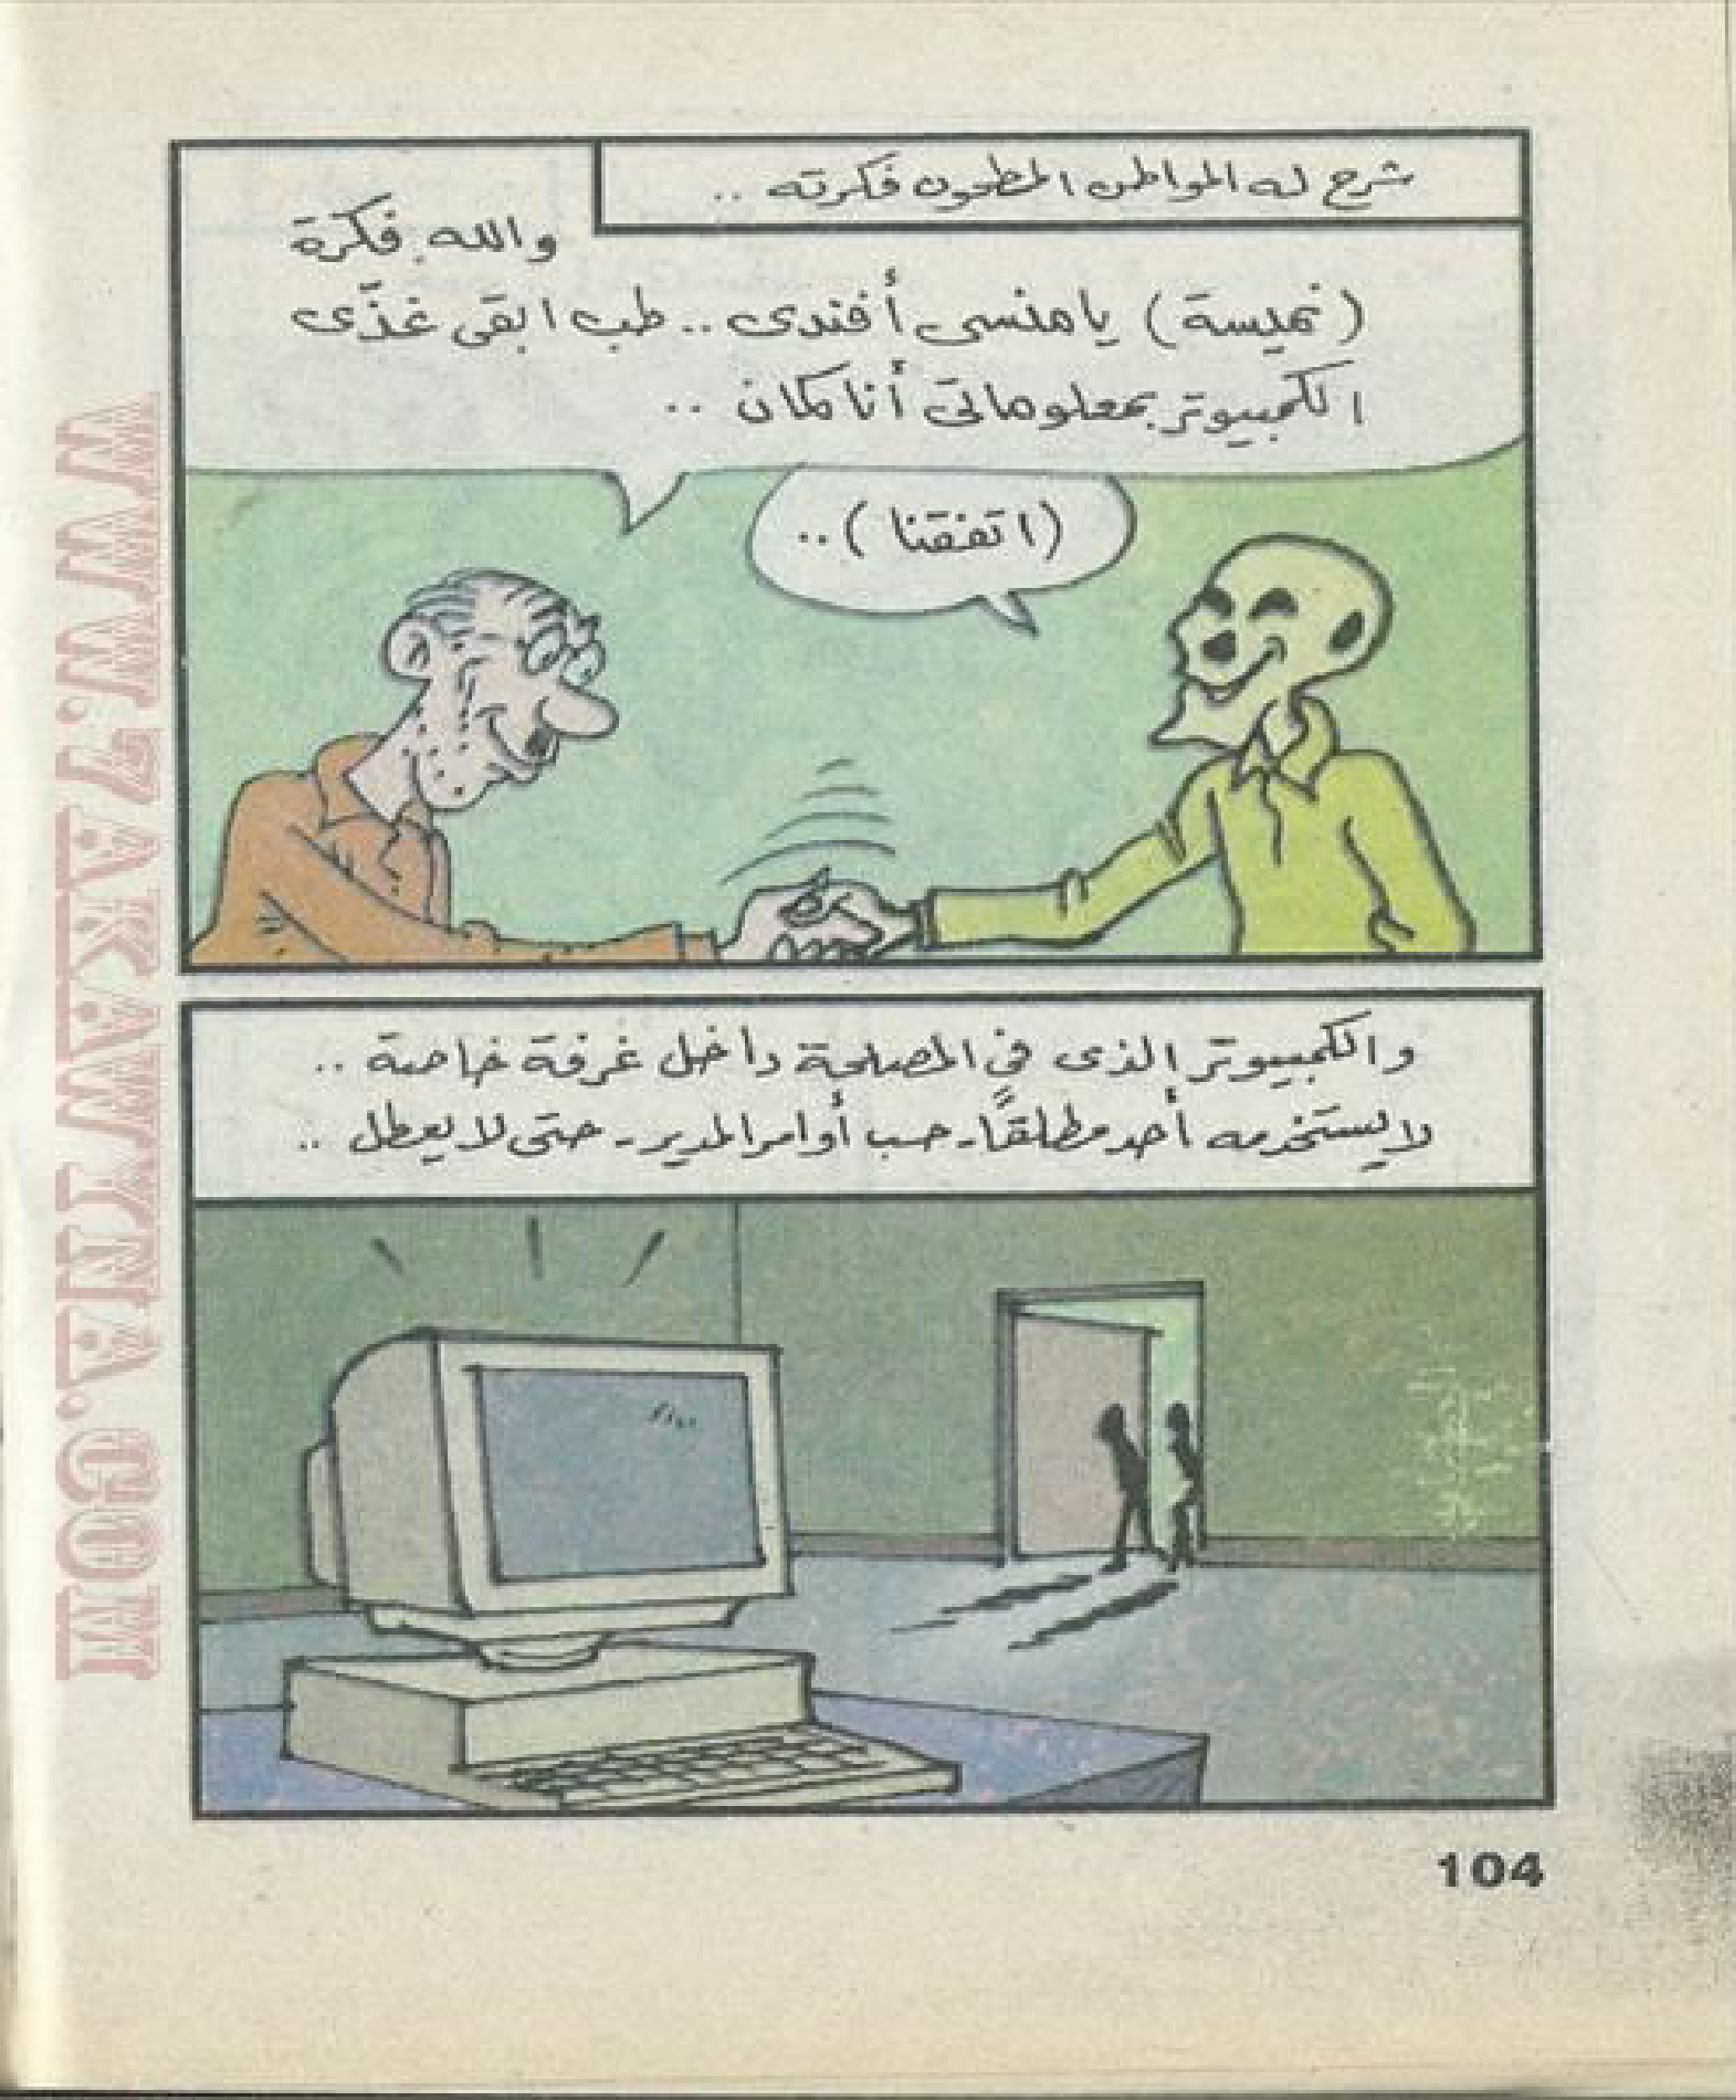 شرح له المواطن المطحون فكرته ..
والله فكرة
(نميسة) يا منسى أفندى .. طب ابقى غذّى
الكمبيوتر بمعلوماتى أنا كمان ..
(اتفقنا) ..
والكمبيوتر الذى فى المصلحة داخل غرفة خاصة ..
لا يستخدمه أحد مطلقًا - حسب أوامر المدير - حتى لا يعطل ..
104
WWW.7AKAWITNA.COM